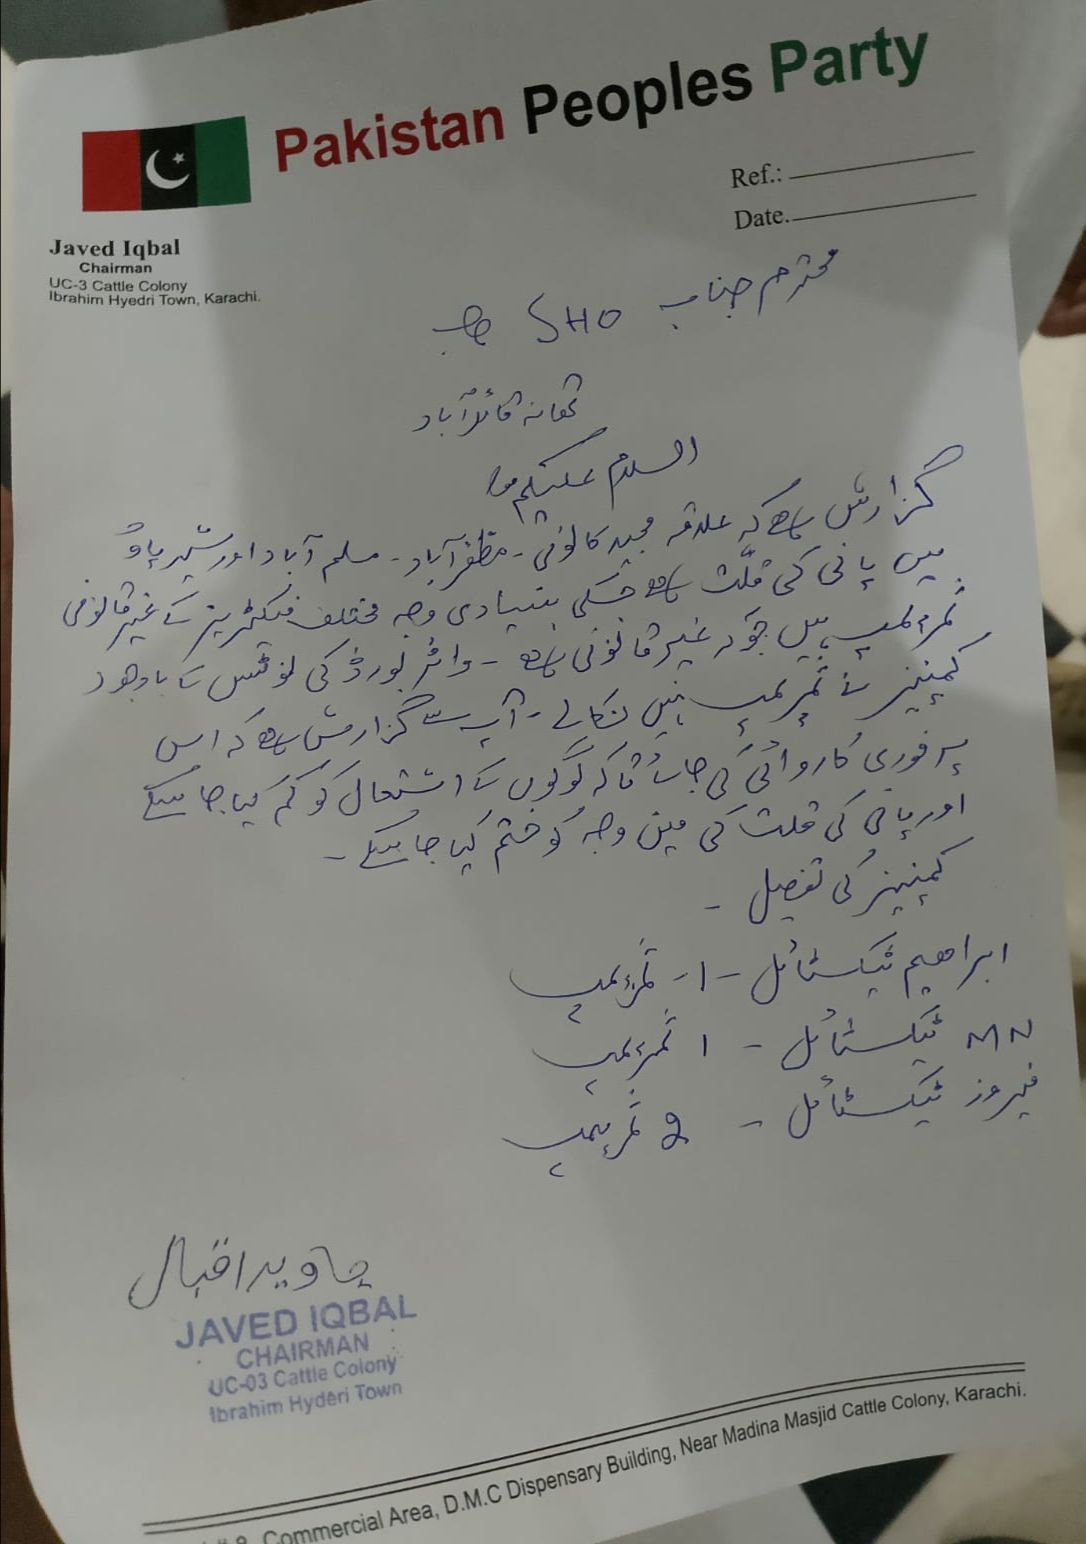 Pakistan Peoples Party
Ref.:
Date.
Javed Iqbal
Chairman
UC-3 Cattle Colony
Ibrahim Hyedri Town, Karachi.
محترم جناب SHO
تھانہ قائدآباد
السلام علیکم
گزارش ہے کہ علاقہ مجید کالونی - مظفرآباد - مسلم آباد اور شیرپاؤ
میں پانی کی قلّت ہے جسکی بنیادی وجہ مختلف فیکٹریز کے غیرقانونی
پمپ ہیں جو کہ غیرقانونی ہے - واٹر بورڈ کی نوٹس کے باوجود
کمپنیز نے پمپ نہیں نکالے - آپ سے گزارش ہے کہ اس
پر فوری کاروائی کی جائے تاکہ لوگوں کے اشتعال کو کم کیا جا سکے
اور پانی کی قلت کی مین وجہ کو ختم کیا جا سکے -
کمپنیز کی تفصیل -
ابراھیم ٹیکسٹائل - 1 - پمپ
MN ٹیکسٹائل - 1 پمپ
فیروز ٹیکسٹائل - 2 پمپ
جاوید اقبال
JAVED IQBAL
CHAIRMAN
UC-03 Cattle Colony
Ibrahim Hyderi Town
Commercial Area, D.M.C Dispensary Building, Near Madina Masjid Cattle Colony, Karachi.